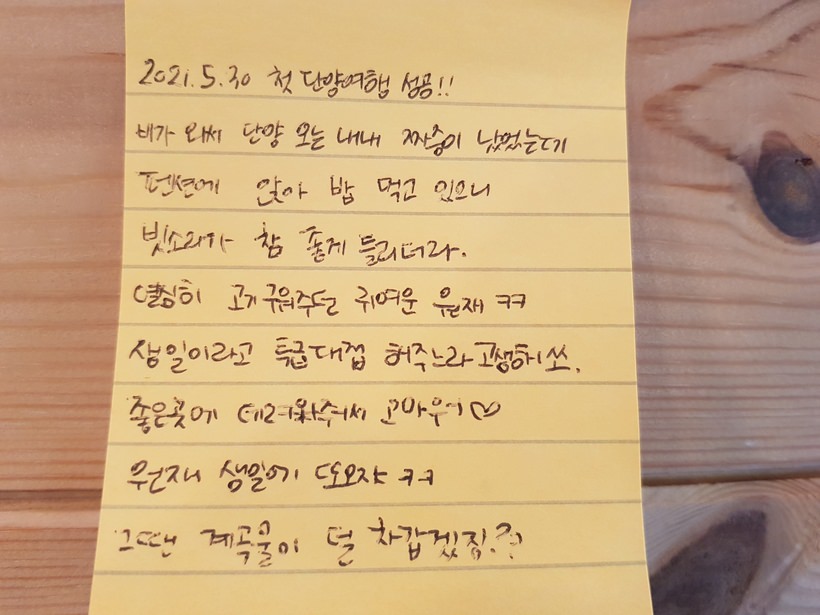 2021.5.30 첫 단양여행 성공!!
배가 와서 단양 오는 내내 짜증이 났었는데
펜션에 앉아 밥 먹고 있으니
빗소리가 참 좋게 들리더라.
열심히 고기 구워주던 귀여운 원재 ㅋㅋ
생일이라고 특급대접 해주느라 고생했소.
좋은곳에 데려와줘서 고마워♡
원재 생일에 또오자 ㅋㅋ
그땐 계곡물이 덜 차갑겠징?